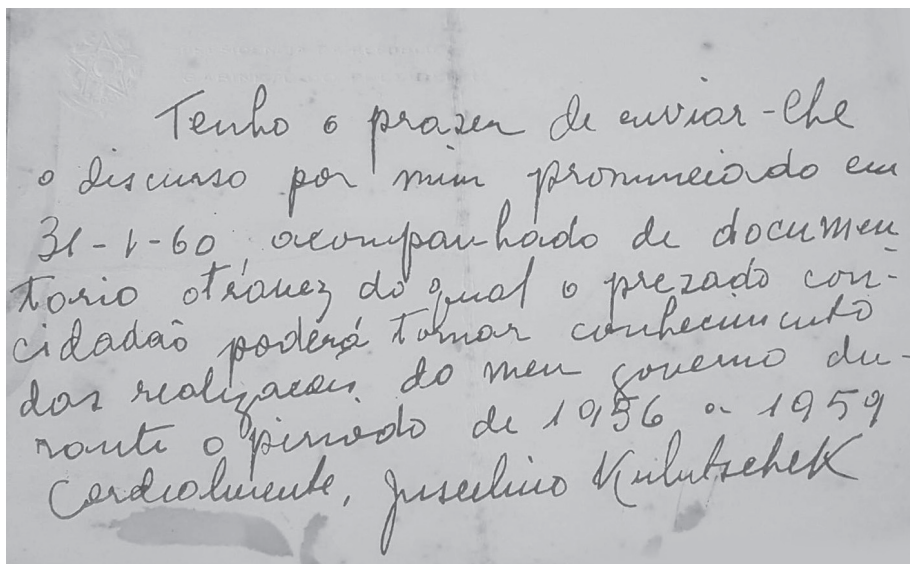 PRESIDENCIA DA REPUBLICA
Tenho o prazer de enviar-lhe
o discurso por mim pronunciado em
31-1-60, acompanhado de documen
tario atravez do qual o prezado con-
cidadão poderá tomar conhecimento
das realizacões do meu governo du-
rante o periodo de 1956 a 1959
Cordialmente, Juscelino Kubitschek